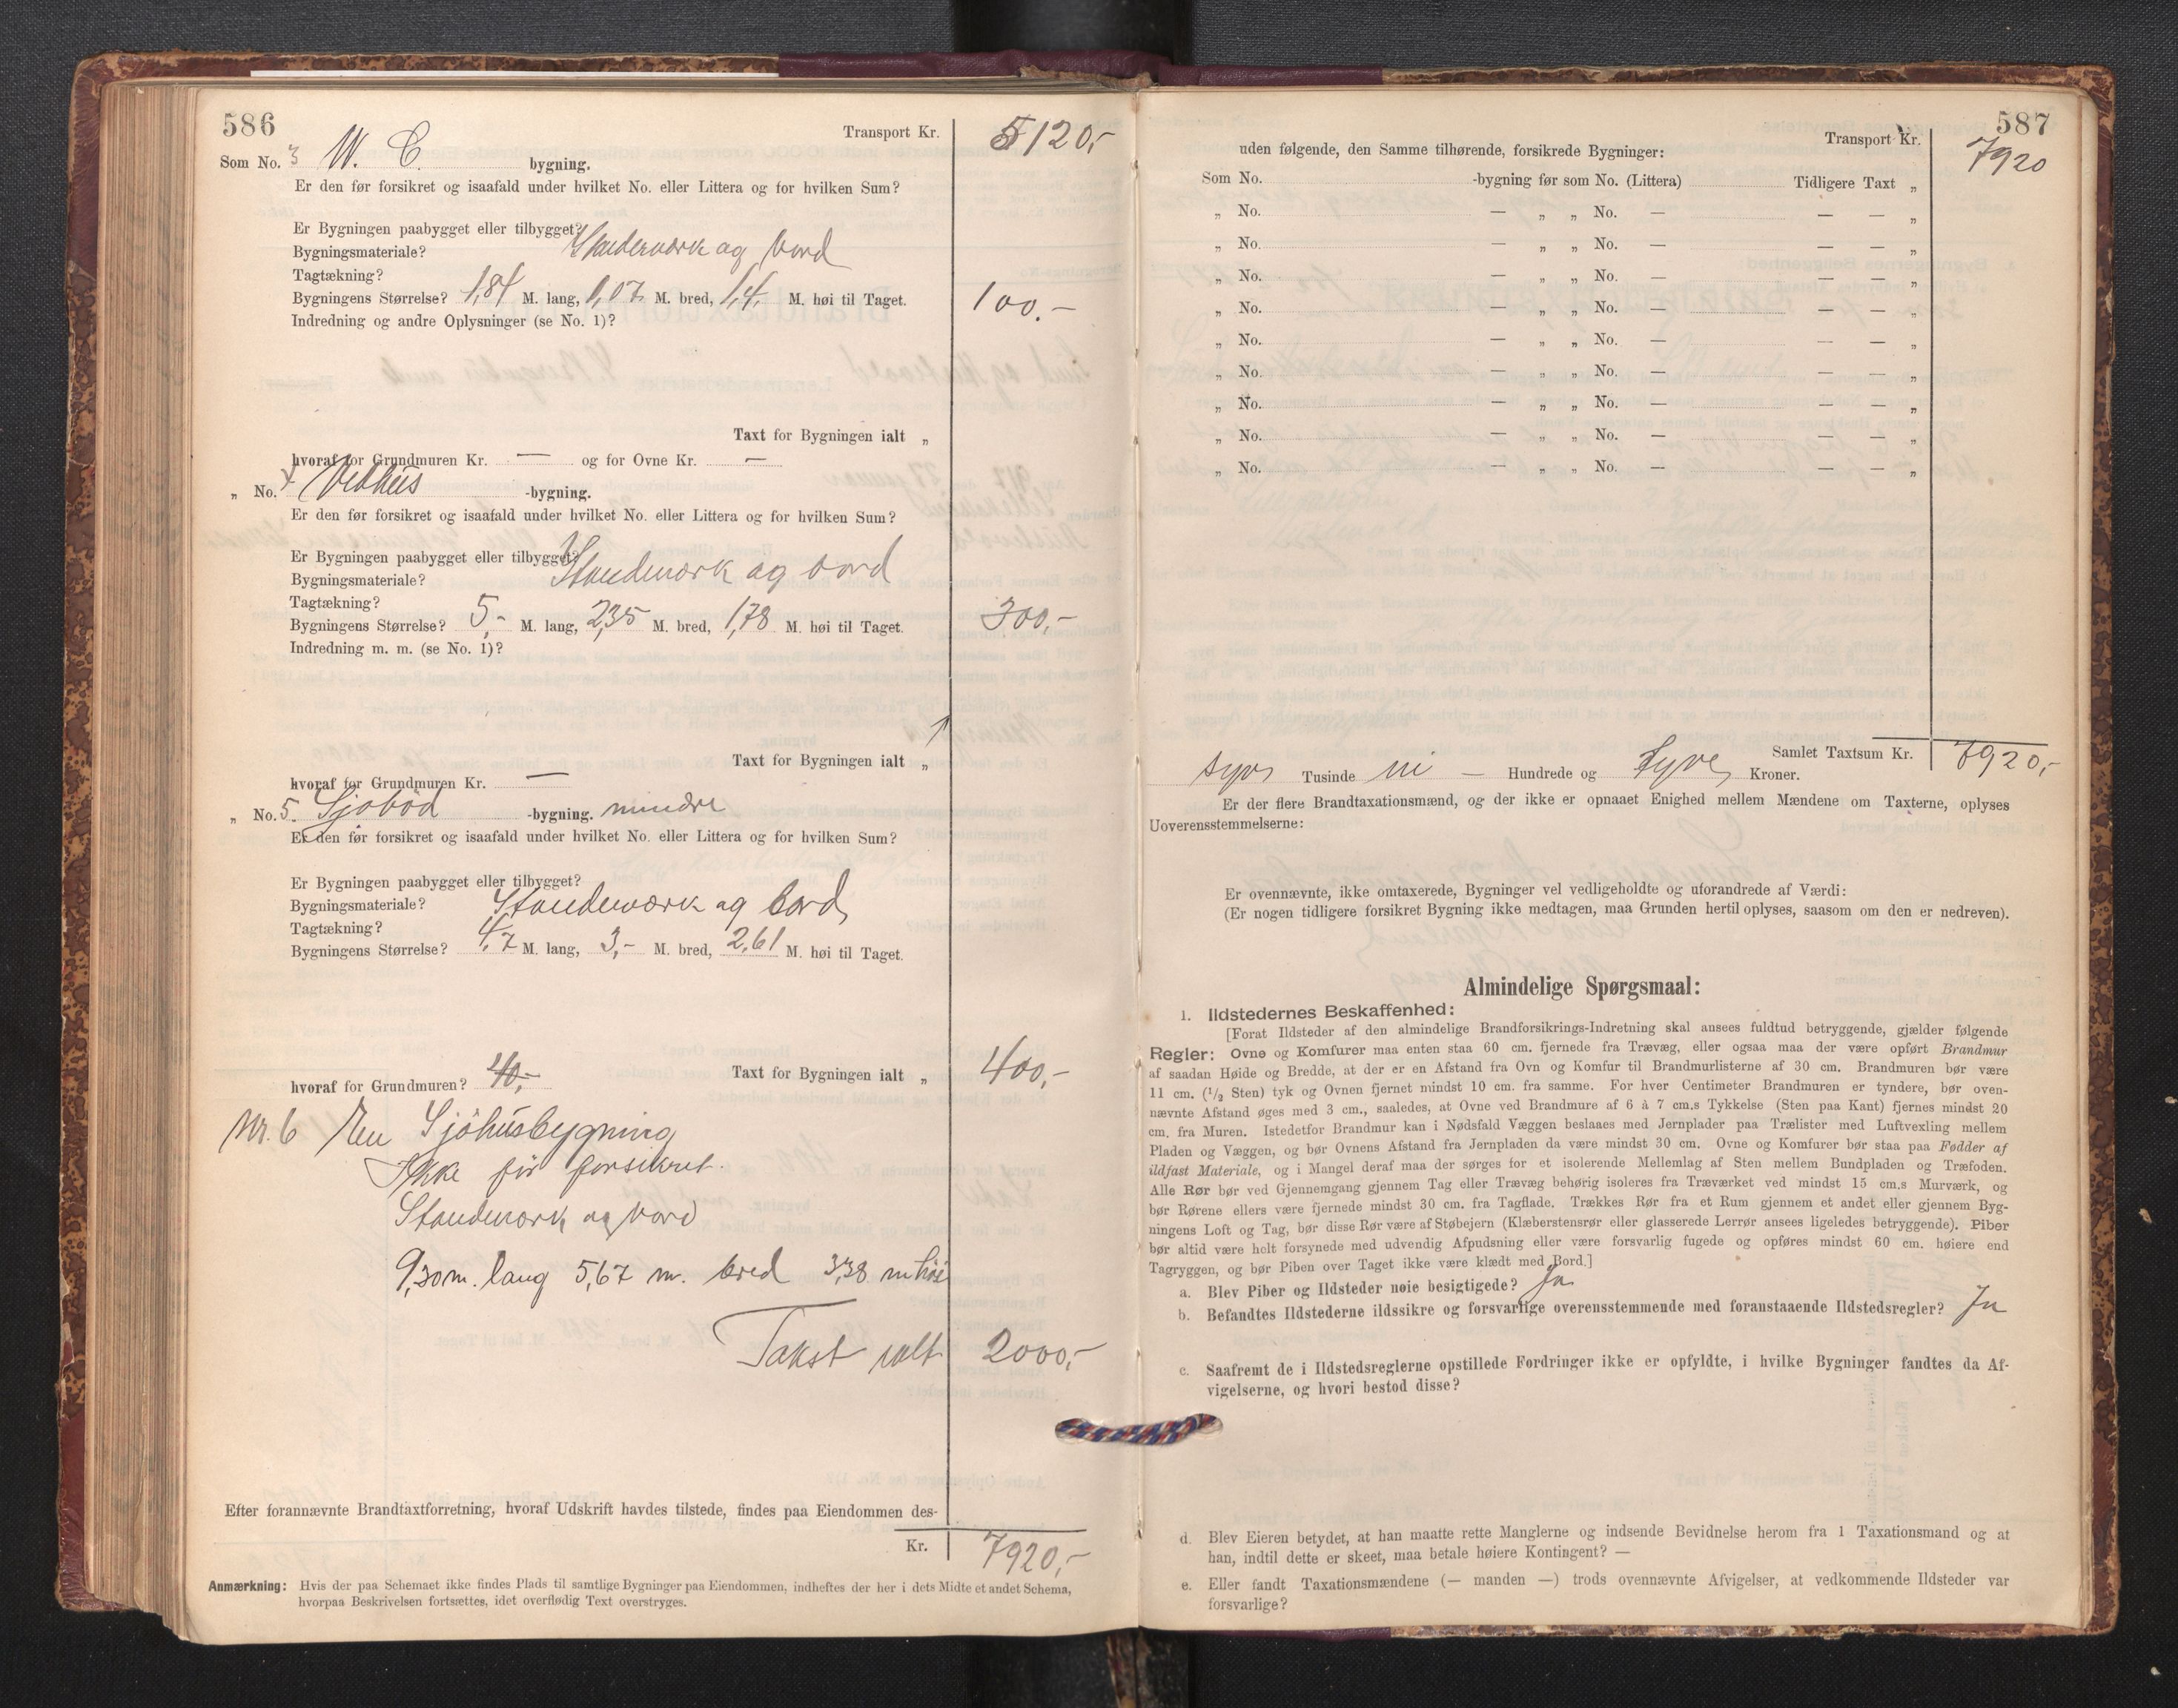 586
Transport Kr. 5120,-
Som No. 3 W. C. bygning.
Er den før forsikret og isaafald under hvilket No. eller Littera og for hvilken Sum?
Er Bygningen paabygget eller tilbygget?
Bygningsmateriale? Standerværk og bord
Tagtækning?
Bygningens Størrelse? 1,84 M. lang, 1,07 M. bred, 1,4 M. høi til Taget. 100.-
Indredning og andre Oplysninger (se No. 1)?
Taxt for Bygningen ialt „
hvoraf for Grundmuren Kr. — og for Ovne Kr. —
„ No. 4 Vedhus -bygning.
Er den før forsikret og isaafald under hvilket No. eller Littera og for hvilken Sum?
Er Bygningen paabygget eller tilbygget?
Bygningsmateriale? Standerværk og bord
Tagtækning?
Bygningens Størrelse? 5,- M. lang, 2,35 M. bred, 1,78 M. høi til Taget. 300,-
Indredning m. m. (se No. 1)?
Taxt for Bygningen ialt „
hvoraf for Grundmuren Kr. —
„ No. 5. Sjøbod -bygning. mindre
Er den før forsikret og isaafald under hvilket No. eller Littera og for hvilken Sum?
Er Bygningen paabygget eller tilbygget?
Bygningsmateriale? Standerværk og bord
Tagtækning?
Bygningens Størrelse? 4,7 M. lang, 3,- M. bred, 2,61 M. høi til Taget.
Taxt for Bygningen ialt „ 400,-
hvoraf for Grundmuren? 40,-
Nr. 6 En Sjøhusbygning
Ikke før forsikret.
Standerværk og bord
9,30 m. lang 5,67 m. bred 3,38 m høi
Takst ialt 2000,-
Efter forannævnte Brandtaxtforretning, hvoraf Udskrift havdes tilstede, findes paa Eiendommen des-
Kr. 7920,-
Anmærkning: Hvis der paa Schemaet ikke findes Plads til samtlige Bygninger paa Eiendommen, indheftes der her i dets Midte et andet Schema,
hvorpaa Beskrivelsen fortsættes, idet overflødig Text overstryges.
587
Transport Kr. 7920
uden følgende, den Samme tilhørende, forsikrede Bygninger:
Som No. -bygning før som No. (Littera) Tidligere Taxt „
„ No. — „ „ No. — — — „
„ No. — „ „ No. — — — „
„ No. — „ „ No. — — — „
„ No. — „ „ No. — — — „
„ No. — „ „ No. — — — „
„ No. — „ „ No. — — — „
„ No. — „ „ No. — — — „
„ No. — „ „ No. — — — „
„ No. — „ „ No. — — — „
Samlet Taxtsum Kr. 7920,-
syv Tusinde ni — Hundrede og tyve Kroner.
Er der flere Brandtaxationsmænd, og der ikke er opnaaet Enighed mellem Mændene om Taxterne, oplyses
Uoverensstemmelserne:
Er ovennævnte, ikke omtaxerede, Bygninger vel vedligeholdte og uforandrede af Værdi:
(Er nogen tidligere forsikret Bygning ikke medtagen, maa Grunden hertil oplyses, saasom om den er nedreven).
Almindelige Spørgsmaal:
1. Ildstedernes Beskaffenhed:
[Forat Ildsteder af den almindelige Brandforsikrings-Indretning skal ansees fuldtud betryggende, gjælder følgende
Regler: Ovne og Komfurer maa enten staa 60 cm. fjernede fra Trævæg, eller ogsaa maa der være opført Brandmur
af saadan Høide og Bredde, at der er en Afstand fra Ovn og Komfur til Brandmurlisterne af 30 cm. Brandmuren bør være
11 cm. (1/2 Sten) tyk og Ovnen fjernet mindst 10 cm. fra samme. For hver Centimeter Brandmuren er tyndere, bør oven-
nævnte Afstand øges med 3 cm., saaledes, at Ovne ved Brandmure af 6 à 7 cm.s Tykkelse (Sten paa Kant) fjernes mindst 20
cm. fra Muren. Istedetfor Brandmur kan i Nødsfald Væggen beslaaes med Jernplader paa Trælister med Luftvexling mellem
Pladen og Væggen, og bør Ovnens Afstand fra Jernpladen da være mindst 30 cm. Ovne og Komfurer bør staa paa Fødder af
ildfast Materiale, og i Mangel deraf maa der sørges for et isolerende Mellemlag af Sten mellem Bundpladen og Træfoden.
Alle Rør bør ved Gjennemgang gjennem Tag eller Trævæg behørig isoleres fra Træværket ved mindst 15 cm.s Murværk, og
bør Rørene ellers være fjernede mindst 30 cm. fra Tagflade. Trækkes Rør fra et Rum gjennem et andet eller gjennem Byg-
ningens Loft og Tag, bør disse Rør være af Støbejern (Klæberstensrør eller glasserede Lerrør ansees ligeledes betryggende). Piber
bør altid være helt forsynede med udvendig Afpudsning eller være forsvarlig fugede og opføres mindst 60 cm. høiere end
Tagryggen, og bør Piben over Taget ikke være klædt med Bord.]
a. Blev Piber og Ildsteder nøie besigtigede? Ja
b. Befandtes Ildstederne ildssikre og forsvarlige overensstemmende med foranstaaende Ildstedsregler? Ja
c. Saafremt de i Ildstedsreglerne opstillede Fordringer ikke er opfyldte, i hvilke Bygninger fandtes da Af-
vigelserne, og hvori bestod disse?
d. Blev Eieren betydet, at han maatte rette Manglerne og indsende Bevidnelse herom fra 1 Taxationsmand og at
han, indtil dette er skeet, maa betale høiere Kontingent? —
e. Eller fandt Taxationsmændene (— manden —) trods ovennævnte Afvigelser, at vedkommende Ildsteder var
forsvarlige?